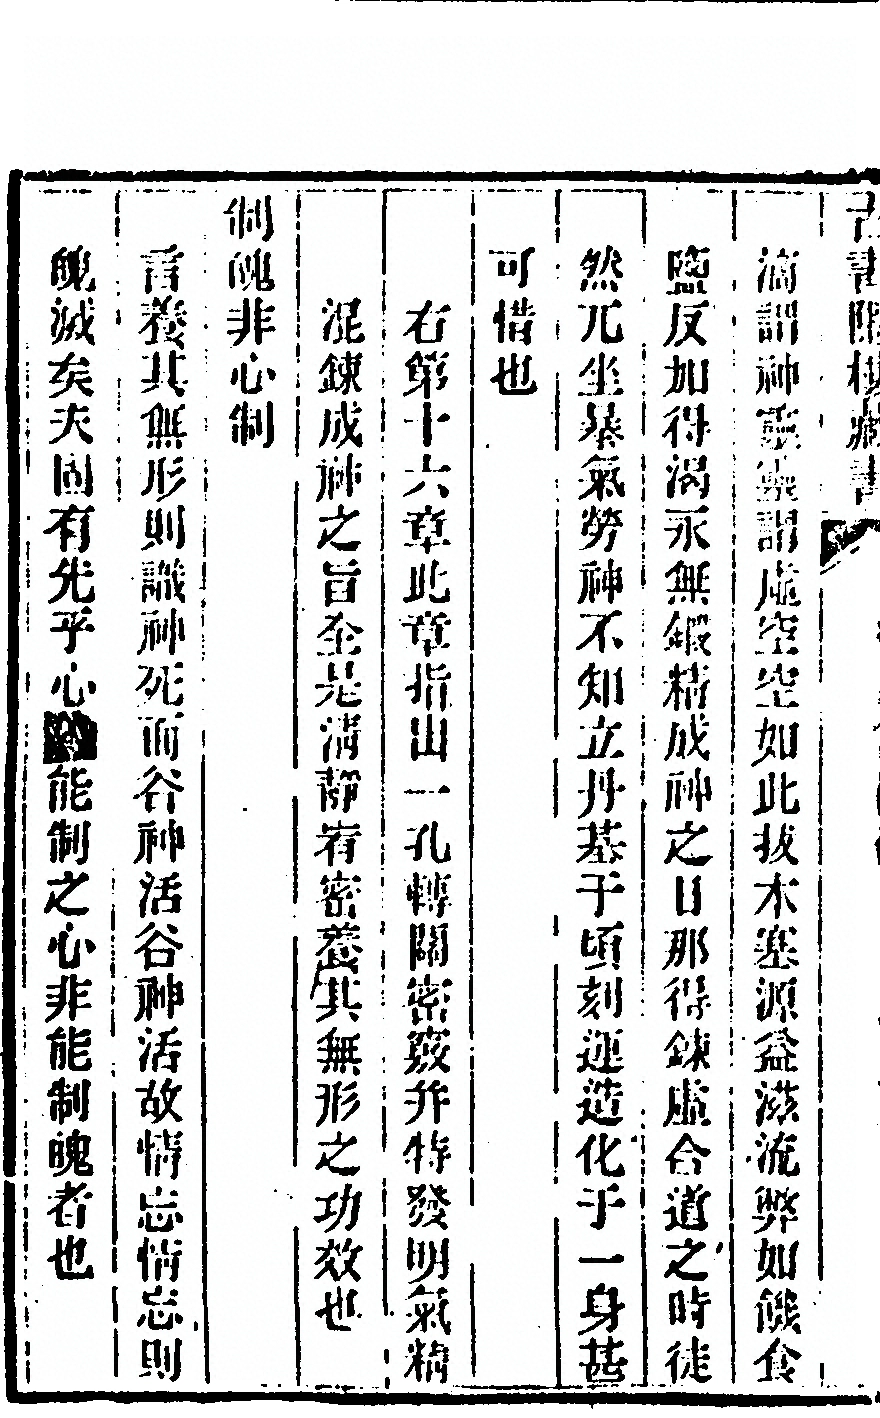 滴謂神靈靈謂虛空空如此拔木塞源益滋流弊如饑食
鹽反加得渴永無鍛精成神之日那得鍊虛合道之時徒
然兀坐暴氣勞神不知立丹基于頃刻運造化于一身甚
可惜也
右第十六章此章指出一孔轉關密竅并特發明氣精
混鍊成神之旨全是清靜宥密養其無形之功效也
制魄非心制
言養其無形則識神死而谷神活谷神活故情忘情忘則
魄滅矣夫固有先乎心能制之心非能制魄者也